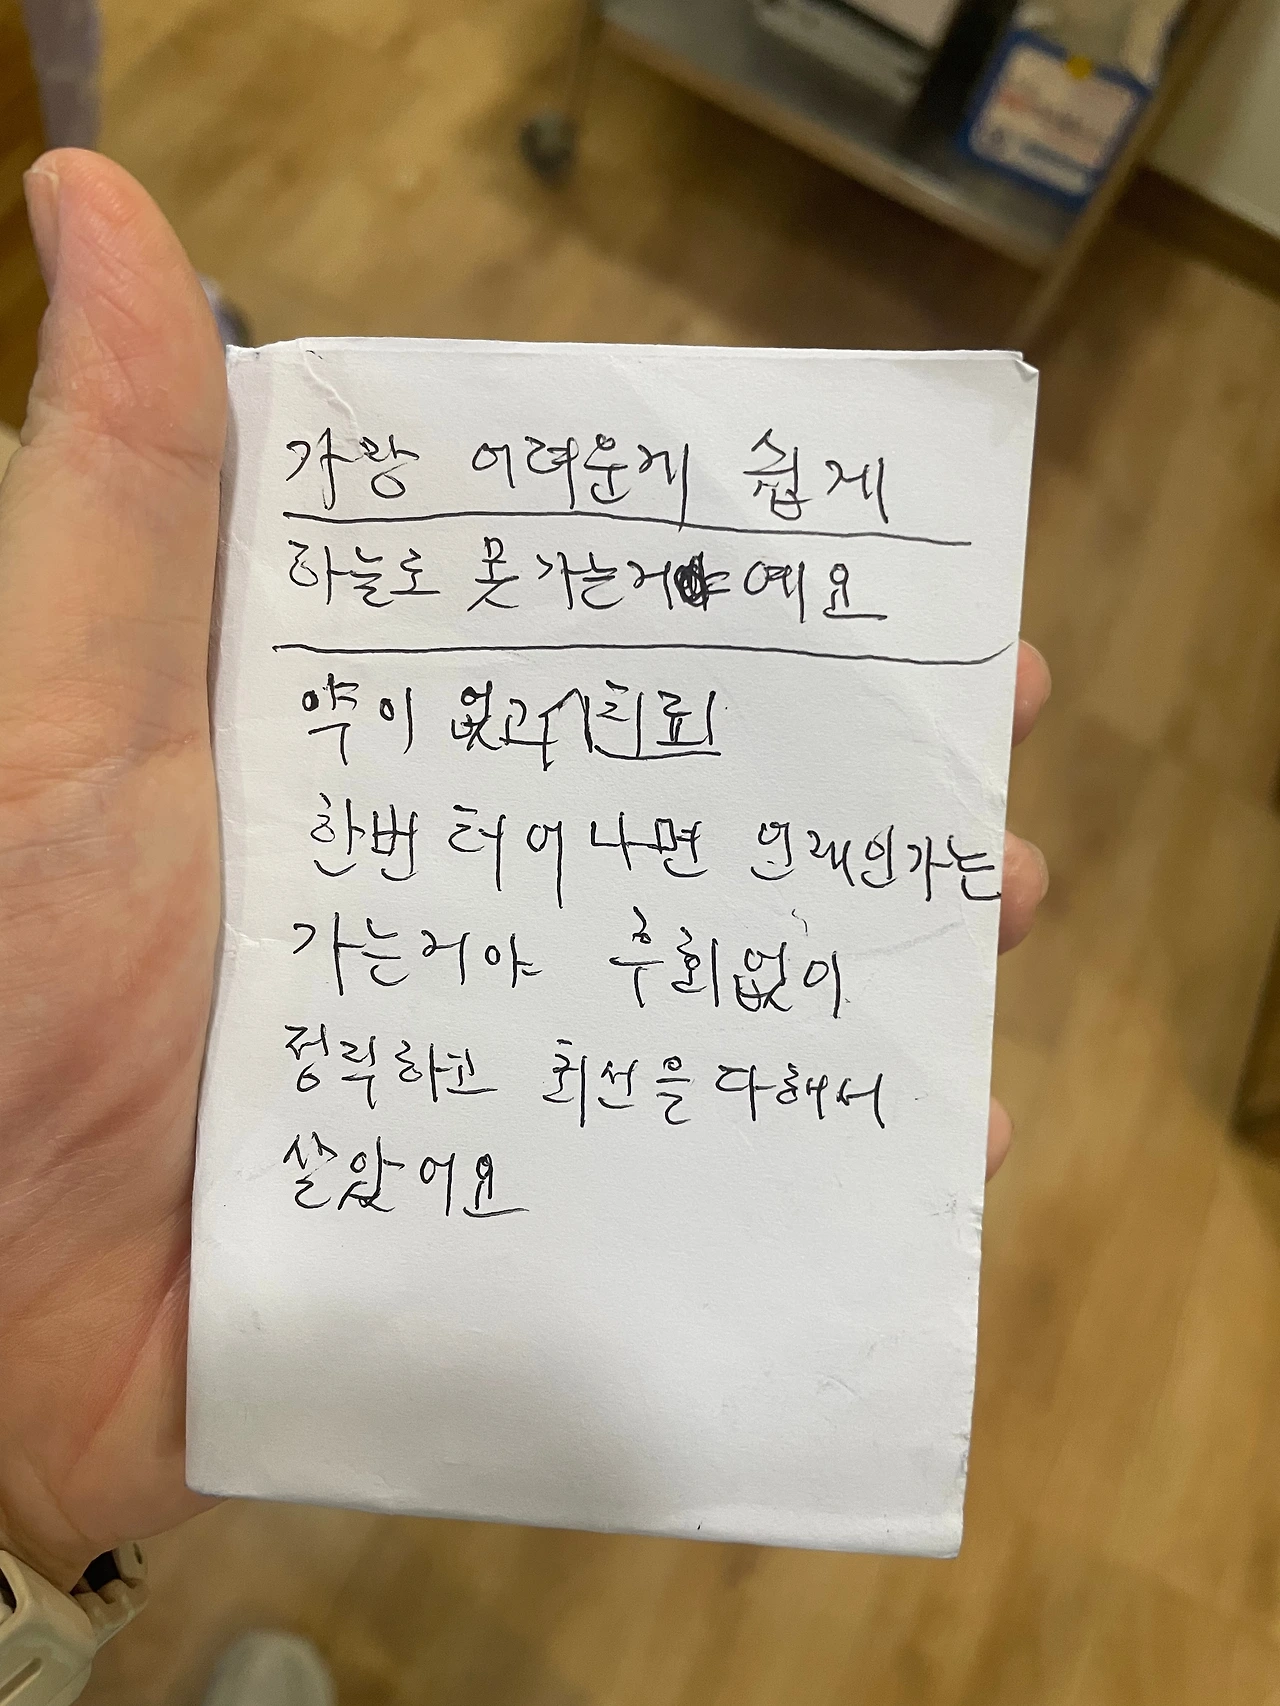 가장 어려운게 쉽게
하늘로 못 가는거예요
약이 없고 치료
한번 터어나면 언재인가는
가는거야 후회없이
정직하고 최선을 다해서
살았어요